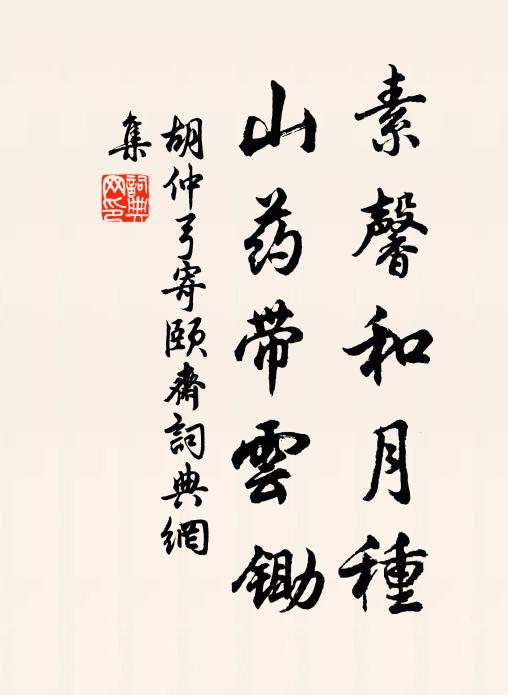 素馨和月種
山药带雲锄
胡仲弓寄頤齋詞典網
集
詞典網印